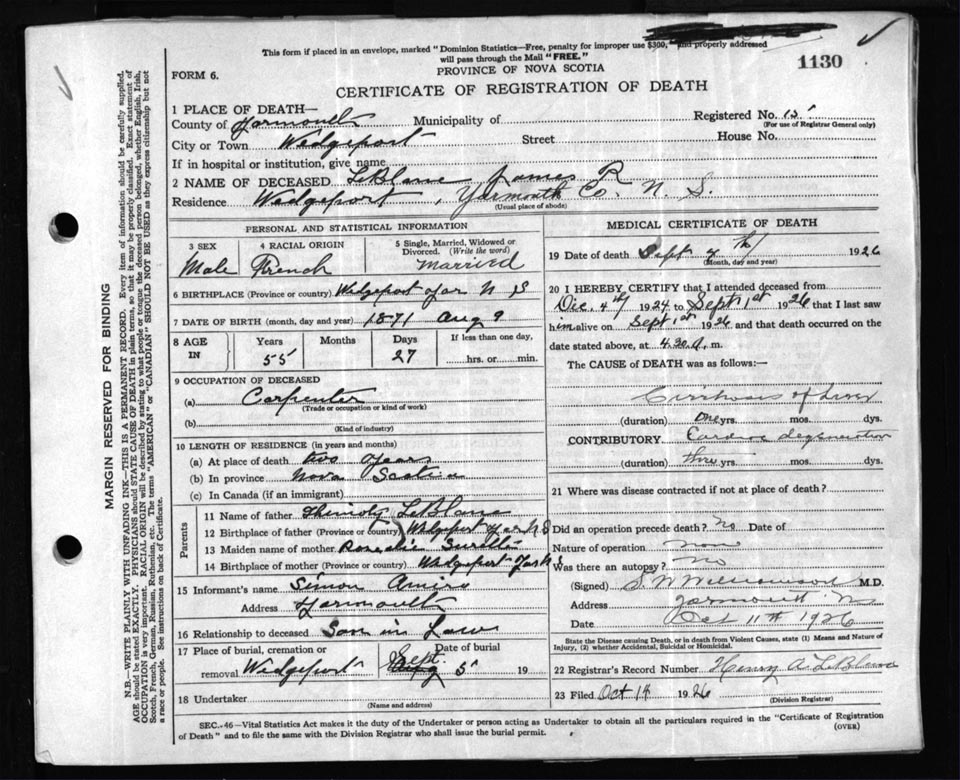 This form if placed in an envelope, marked "Dominion Statistics—Free, penalty for improper use $300," and properly addressed
will pass through the Mail "FREE."
1130
PROVINCE OF NOVA SCOTIA
FORM 6.
CERTIFICATE OF REGISTRATION OF DEATH
MARGIN RESERVED FOR BINDING
N.B.—WRITE PLAINLY WITH UNFADING INK—THIS IS A PERMANENT RECORD. Every item of information should be carefully supplied.
AGE should be stated EXACTLY. PHYSICIANS should STATE CAUSE OF DEATH in plain terms, so that it may be properly classified. Exact statement of
OCCUPATION is very important. RACIAL ORIGIN will be described by stating to what people or tongue the deceased person belonged, whether English, Irish,
Scotch, French, German, Russian, Ruthenian, etc. The terms "AMERICAN" or "CANADIAN" SHOULD NOT BE USED as they express citizenship but not
a race or people. See instructions on back of Certificate.
1 PLACE OF DEATH—
County of Yarmouth Municipality of Registered No. 15
(For use of Registrar General only)
City or Town Wedgeport Street House No.
If in hospital or institution, give name
2 NAME OF DECEASED LeBlanc James R
Residence Wedgeport, Yarmouth Co. N. S.
(Usual place of abode)
PERSONAL AND STATISTICAL INFORMATION
3 SEX 4 RACIAL ORIGIN 5 Single, Married, Widowed or
Divorced. (Write the word)
Male French Married
6 BIRTHPLACE (Province or country) Wedgeport Yar N S
7 DATE OF BIRTH (month, day and year) 1871 Aug 9
8 AGE IN Years Months Days If less than one day,
55 27 hrs. or min.
9 OCCUPATION OF DECEASED
(a) Carpenter
(Trade or occupation or kind of work)
(b)
(Kind of industry)
10 LENGTH OF RESIDENCE (in years and months)
(a) At place of death two Years
(b) In province Nova Scotia
(c) In Canada (if an immigrant)
Parents
11 Name of father LeBlanc
12 Birthplace of father (Province or country) Wedgeport Yar N S
13 Maiden name of mother Rosalie Surette
14 Birthplace of mother (Province or country) Wedgeport Yar
15 Informant's name Simon Amiro
Address Yarmouth
16 Relationship to deceased Son in Law
17 Place of burial, cremation or Date of burial
removal Wedgeport Sept. 5 19
18 Undertaker
(Name and address)
MEDICAL CERTIFICATE OF DEATH
19 Date of death Sept th 1926
(Month, day and year)
20 I HEREBY CERTIFY that I attended deceased from
Dec. 4th 1924 to Sept 1st 1926 that I last saw
him alive on Sept 1st 1926 and that death occurred on the
date stated above, at 4.30 a. m.
The CAUSE OF DEATH was as follows:—
Cirrhosis of Liver
(duration) one yrs. mos. dys.
CONTRIBUTORY Cardiac degeneration
(duration) three yrs. mos. dys.
21 Where was disease contracted if not at place of death?
Did an operation precede death? No Date of
Nature of operation none
Was there an autopsy? No
(Signed) S W Williamson M.D.
Address Yarmouth N
Date Oct 11th 1926
State the Disease causing Death, or in death from Violent Causes, state (1) Means and Nature of
Injury, (2) whether Accidental, Suicidal or Homicidal.
22 Registrar's Record Number Henry A LeBlanc
23 Filed Oct 14 1926
(Division Registrar)
SEC. 46—Vital Statistics Act makes it the duty of the Undertaker or person acting as Undertaker to obtain all the particulars required in the "Certificate of Registration
of Death" and to file the same with the Division Registrar who shall issue the burial permit.
(OVER)